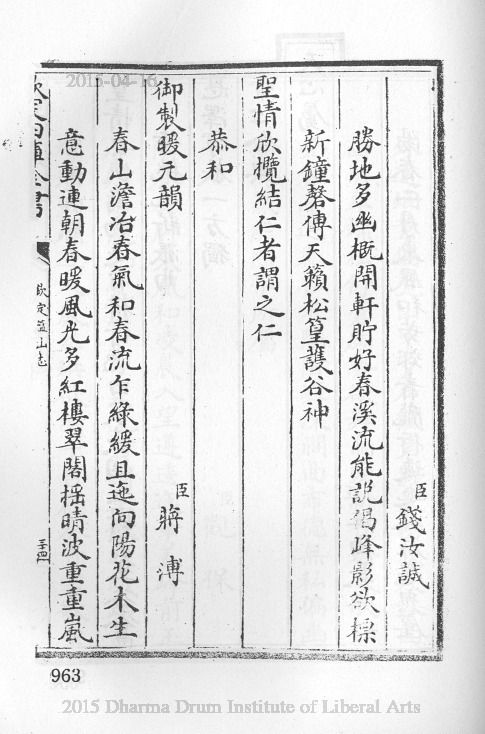 2015-04-16
臣錢汝誠
勝地多幽概開軒貯好春溪流能説偈峰影欲標
新鐘磬傳天籟松篁護谷神
聖情欣攬結仁者謂之仁
恭和
御製暖元韻
臣蔣溥
春山澹冶春氣和春流乍綠緩且迤向陽花木生
意動連朝春暖風光多紅樓翠閣搖晴波重重嵐
欽定四庫全書
欽定盤山志
三十四
963
2015 Dharma Drum Institute of Liberal Arts